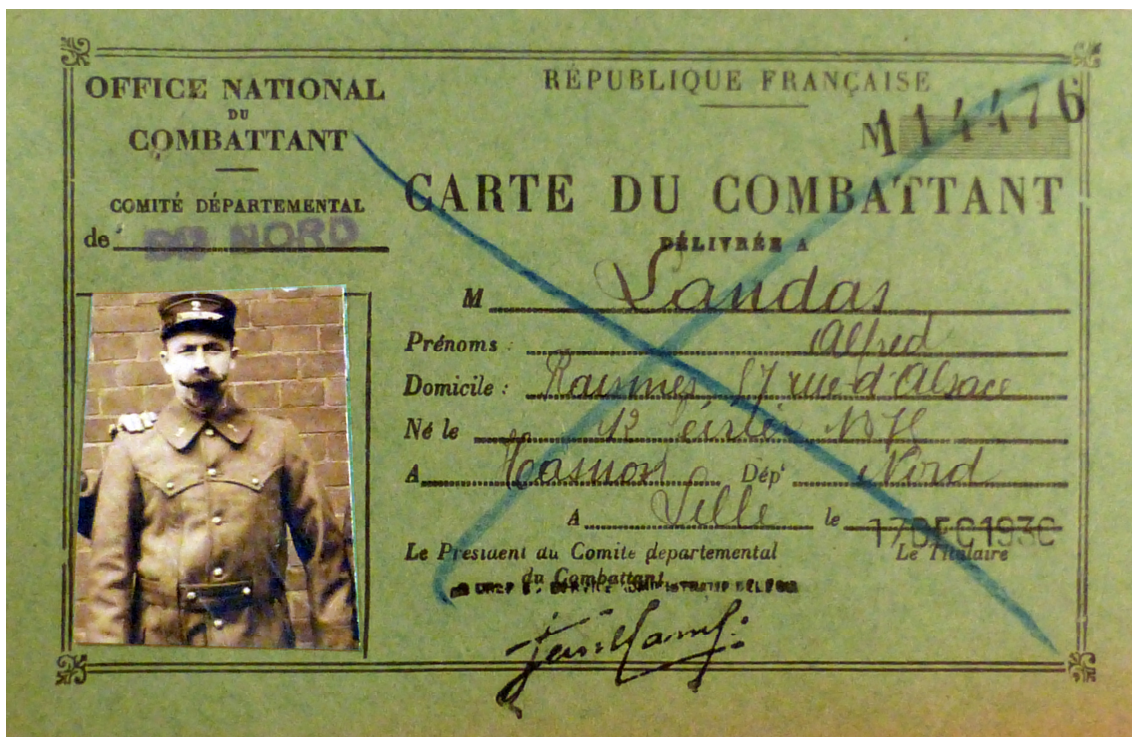 OFFICE NATIONAL
DU
COMBATTANT
COMITÉ DÉPARTEMENTAL
de DU NORD
RÉPUBLIQUE FRANÇAISE
M 114476
CARTE DU COMBATTANT
DÉLIVRÉE A
M Landas
Prénoms : Alfred
Domicile : Raismes 57 rue d'Alsace
Né le 12 février
A Hasnon Dépt Nord
A Lille le 17 DEC 1930
Le President du Comité departemental
du Combattant
Le Titulaire